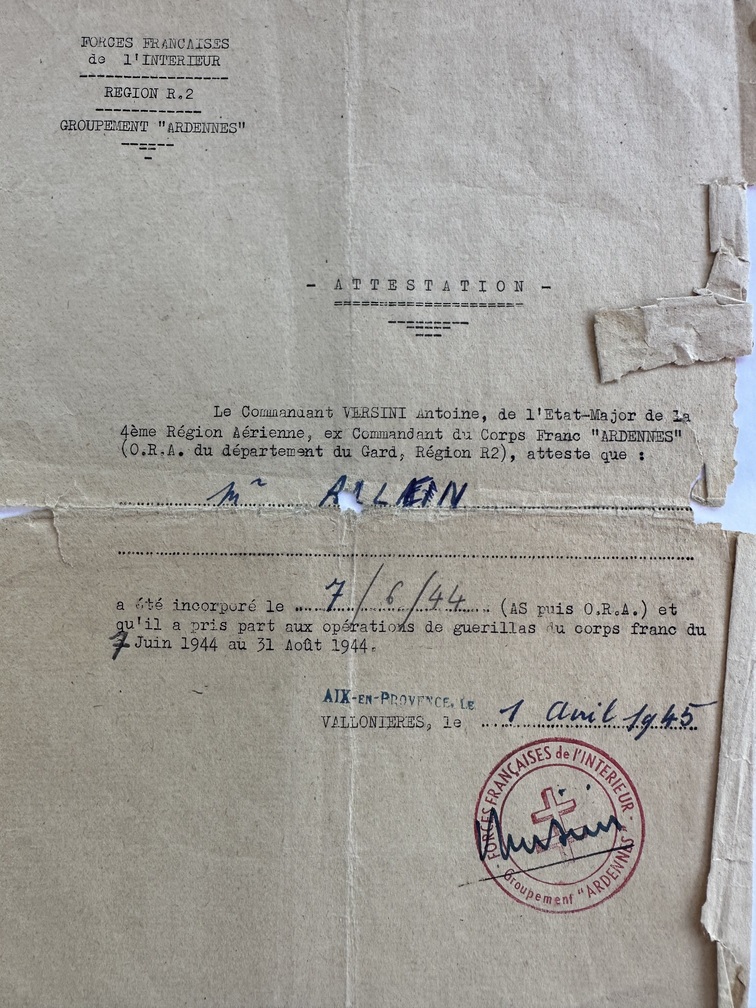 FORCES FRANCAISES
de l'INTERIEUR
REGION R.2
GROUPEMENT "ARDENNES"
- ATTESTATION -
Le Commandant VERSINI Antoine, de l'Etat-Major de la
4ème Région Aérienne, ex Commandant du Corps Franc "ARDENNES"
(O.R.A. du département du Gard, Région R2), atteste que :
Mr ALLEIN
a été incorporé le 7/6/44 (AS puis O.R.A.) et
qu'il a pris part aux opérations de guerillas du corps franc du
7 Juin 1944 au 31 Août 1944.
AIX-EN-PROVENCE, LE
VALLONIERES, le 1 Avril 1945
FORCES FRANÇAISES de l'INTERIEUR
Groupement "ARDENNES"
Versini